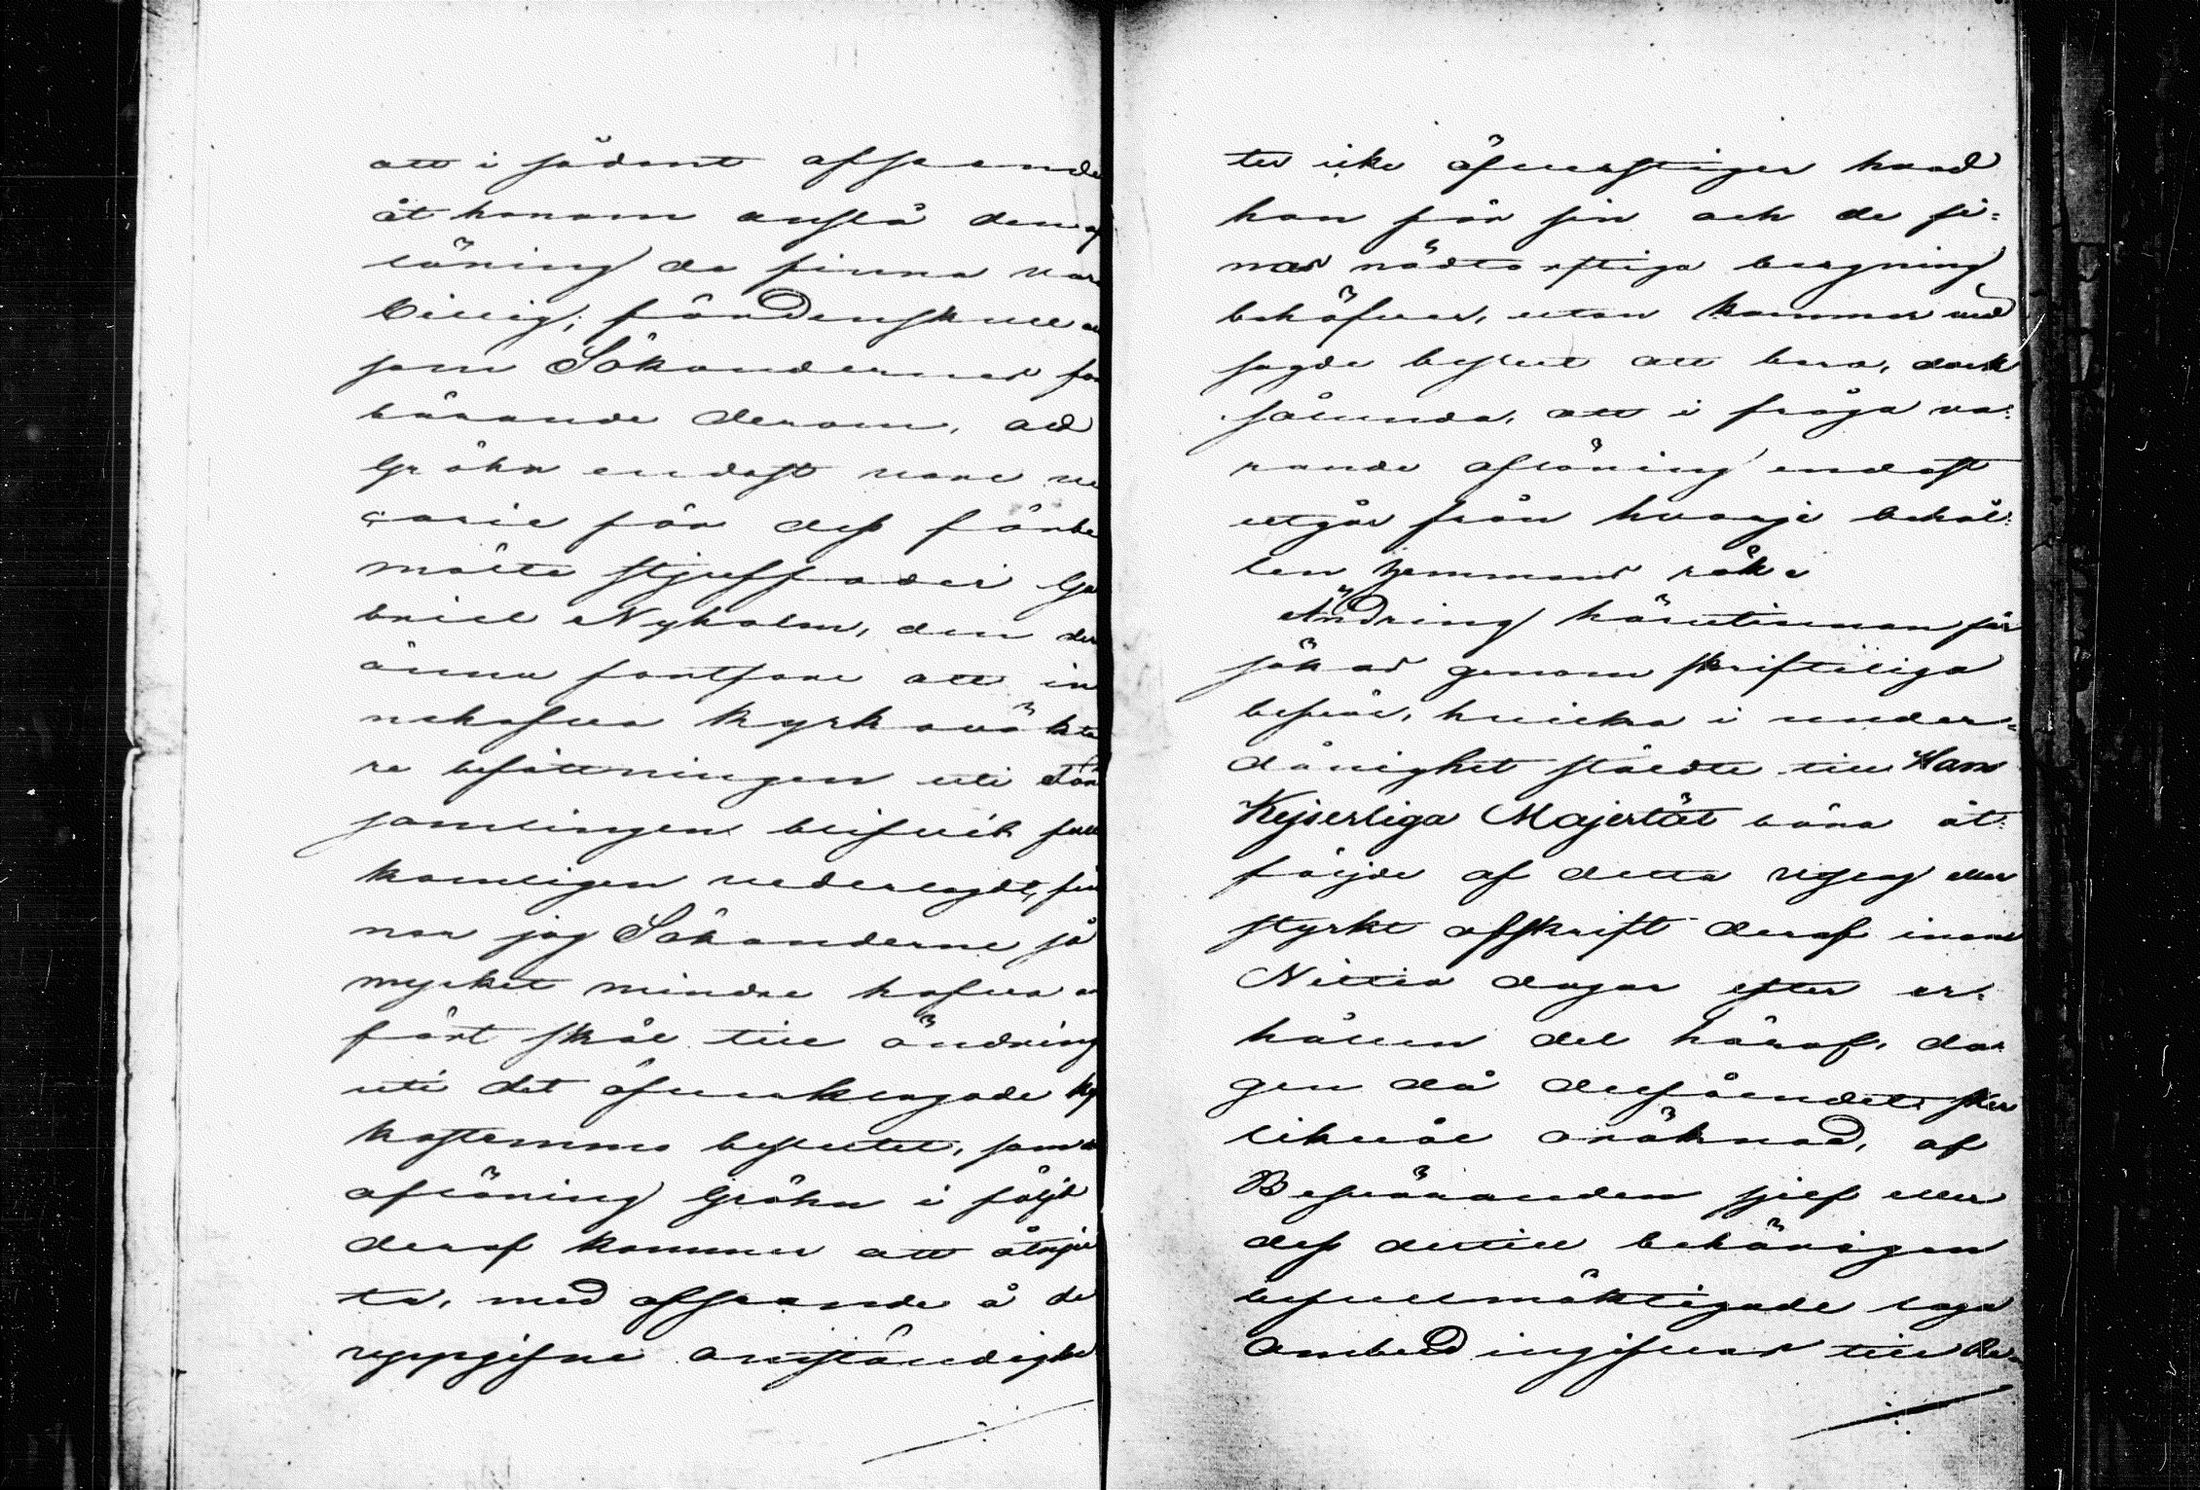 att i sådant afseende
åt honom anslå den af
löning de finna vara
billig; fördenskull
som Sökandernes fö
bärande derom, att
Gröhn endast vore vi
carie för dess förbe
mälte stjuffader Ga
briel Nyholm, den der
ännu fortfore att in
nehafva kyrkovakta
re befattningen uti För
samlingen blifvit full
komligen vederlagdt, fin
ner jag Sökanderne så
mycket mindre hafva
fört skäl till ändring
uti det öfverklagade ky
kostemmo beslutet, som
aflöning Gröhn i följd
deraf kommer att åtnju
ta, med afseende å de
uppgifne omständighe
ter icke öfverstiger hvad
han för sin och de si=
nas nödtorftiga bergning
behöfver, utan kommer vid
sagde beslut att bero, dock
sålunda, att i fråga va=
rande aflöning endast
utgår från hvarje behål=
len hemmans rök.
Ändring häruti innan får
sökas genom skriftliga
besvär, hvilka i under=
dånighet stälde till Hans
Kejserliga Majestät böra åt=
följde af detta utslag eller
styrkt afskrift deraf inom
Nittio dagar efter er=
hållen del häraf, da=
gen då delfåendet sker
likväl oräknad, af
Besväranden sjelf eller
dess dertill behörigen
befullmäktigade laga
ombud ingifvas till